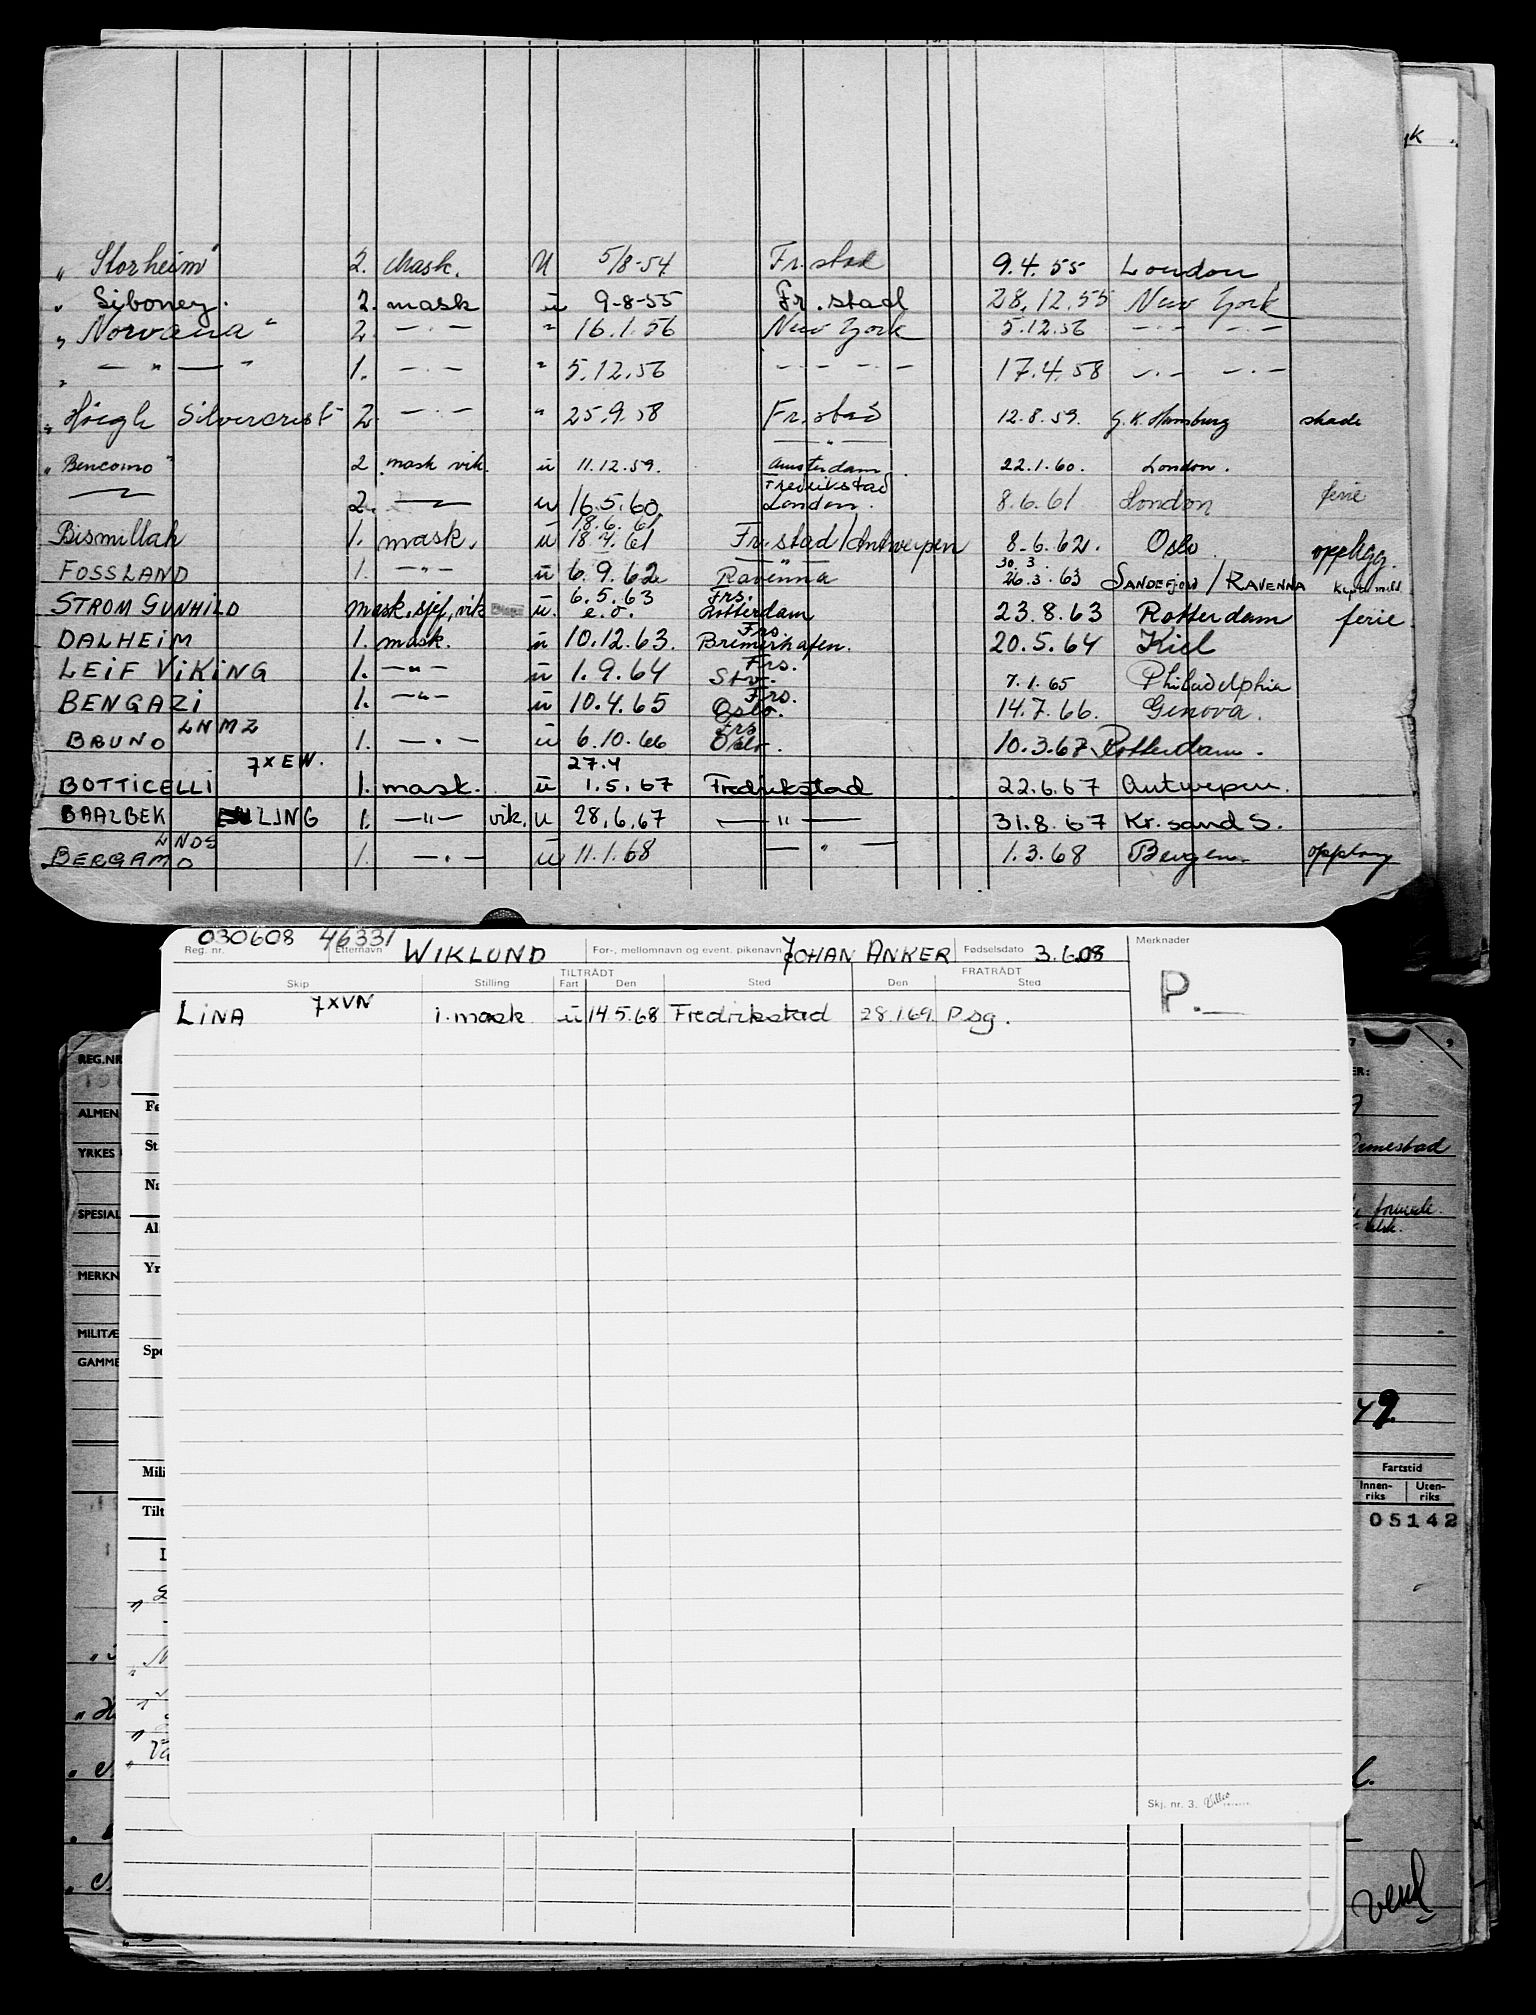 yk
„ Storheim" 2. Mask. U 5/8-54 Fr.stad 9.4.55 London
„ Siboney. 2. mask u 9-8-55 Fr.stad 28.12.55 New York
„ Norvana" 2. — · — " 16.1.56 New York 5.12.56 — · — — · —
„ — " — " 1. — · — " 5.12.56 — - — - — 17.4.58 — · — — · —
„ Höegh Silvercrest" 2. — · — " 25.9.58 Fr.stad 12.8.59. G.K. Hamburg skade
— " —
„ Bencomo" 2 mask vik. u 11.12.59. Amsterdam 22.1.60. London.
Fredrikstad
2. u 16.5.60 London. 8.6.61 London ferie
18.6.61
Bismillah 1. mask. u 18.4.61 Fr.stad/Antwerpen 8.6.62. Oslo. opplegg.
30.3 — " —
FOSSLAND 1. — " — u 6.9.62 Ravenna 26.3.63 SANDEFJORD / RAVENNA
6.5.63 Frs.
STROM GUNHILD mask.sjef, vik u. e.o. Rotterdam 23.8.63 Rotterdam ferie
Frs.
DALHEIM 1. mask. u 10.12.63. Bremerhafen. 20.5.64 Kiel
Frs.
LEIF VIKING 1. — " — u 1.9.64 Stv. 7.1.65 Philadelphia
Frs.
BENGAZI 1. — " — u 10.4.65 Oslo. 14.7.66. Genova.
LNMZ Frs
BRUNO 1. — · — u 6.10.66 Oslo. 10.3.67 Rotterdam.
7XEW. 27.4
BOTTICELLI 1. mask. u 1.5.67 Fredrikstad 22.6.67 Antwerpen.
BAALBEK LJNG 1. — " — vik. u 28.6.67 — " — 31.8.67 Kr.sand S.
LNDS
BERGAMO 1. — · — u 11.1.68 — " — 1.3.68 Bergen opplag
030608 46331
Reg. nr. Etternavn WIKLUND For-, mellomnavn og event. pikenavn JOHAN ANKER Fødselsdato 3.6.08 Merknader
TILTRÅDT FRATRÅDT
Skip Stilling Fart Den Sted Den Sted
P. —
LINA 7XVN 1. mask u 14.5.68 Fredrikstad 28.1.69. Psg.
Skj. nr. 3.
REG.NR
ALMEN
YRKES
SPESIAL
MERKN
MILITÆ
GAMME
Fø
St
Na
Al
Yr
Spe
Mili
Tilt
ER:
49
Fartstid
Innen-riks Uten-riks
05142
vend